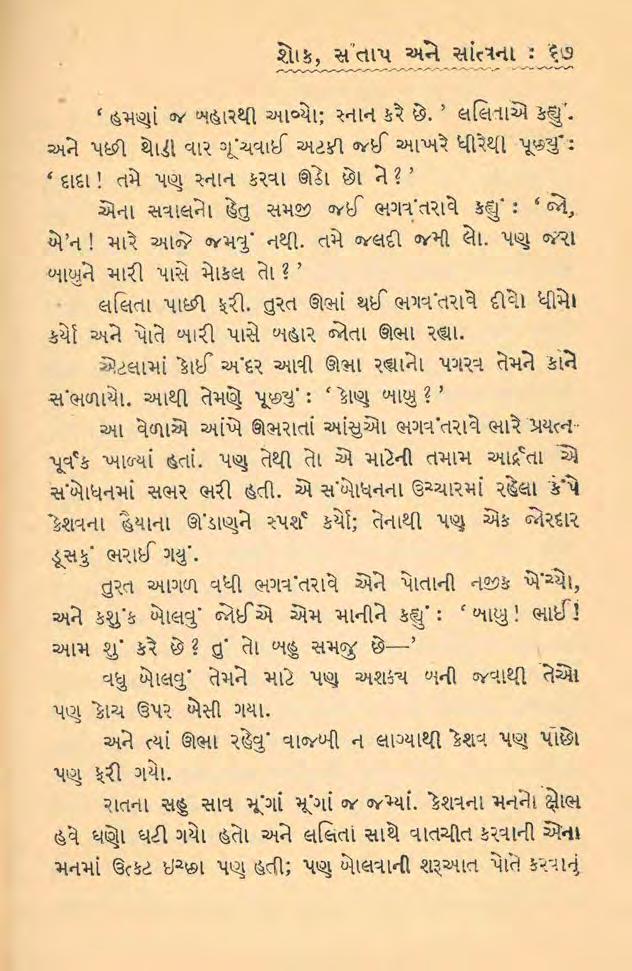 શોક, સંતાપ અને સાંત્વના : ૬૭
‘ હમણાં જ બહારથી આવ્યો; સ્નાન કરે છે. ’ લલિતાએ કહ્યું.
અને પછી થોડી વાર ગૂંચવાઈ અટકી જઈ આખરે ધીરેથી પૂછ્યું :
‘ દાદા ! તમે પણ સ્નાન કરવા ઊઠો છો ને ? ’
એના સવાલનો હેતુ સમજી જઈ ભગવંતરાવે કહ્યું : ‘ જો,
બે’ન ! મારે આજે જમવું નથી. તમે જલદી જમી લો. પણ જરા
બાબુને મારી પાસે મોકલ તો ? ’
લલિતા પાછી ફરી. તુરત ઊભાં થઈ ભગવંતરાવે દીવો ધીમો
કર્યો અને પોતે બારી પાસે બહાર જોતા ઊભા રહ્યા.
એટલામાં કોઈ અંદર આવી ઊભા રહ્યાનો પગરવ તેમને કાને
સંભળાયો. આથી તેમણે પૂછ્યું : ‘ કોણ બાબુ ? ’
આ વેળાએ આંખે ઊભરાતાં આંસુઓ ભગવંતરાવે ભારે પ્રયત્ન-
પૂર્વક ખાળ્યાં હતાં. પણ તેથી તો એ માટેની તમામ આર્દ્રતા એ
સંબોધનમાં સભર ભરી હતી. એ સંબોધનના ઉચ્ચારમાં રહેલા કંપે
કેશવના હૈયાના ઊંડાણને સ્પર્શ કર્યો; તેનાથી પણ એક જોરદાર
ડૂસકું ભરાઈ ગયું.
તુરત આગળ વધી ભગવંતરાવે એને પોતાની નજીક ખેંચ્યો,
અને કશુંક બોલવું જોઈએ એમ માનીને કહ્યું : ‘ બાબુ ! ભાઈ !
આમ શું કરે છે ? તું તો બહુ સમજુ છે—’
વધુ બોલવું તેમને માટે પણ અશક્ય બની જવાથી તેઓ
પણ કોચ ઉપર બેસી ગયા.
અને ત્યાં ઊભા રહેવું વાજબી ન લાગ્યાથી કેશવ પણ પાછો
પણ ફરી ગયો.
રાતના સહુ સાવ મૂંગાં મૂંગાં જ જમ્યાં. કેશવના મનનો ક્ષોભ
હવે ઘણો ઘટી ગયો હતો અને લલિતા સાથે વાતચીત કરવાની એના
મનમાં ઉત્કટ ઇચ્છા પણ હતી; પણ બોલવાની શરૂઆત પોતે કરવાનું